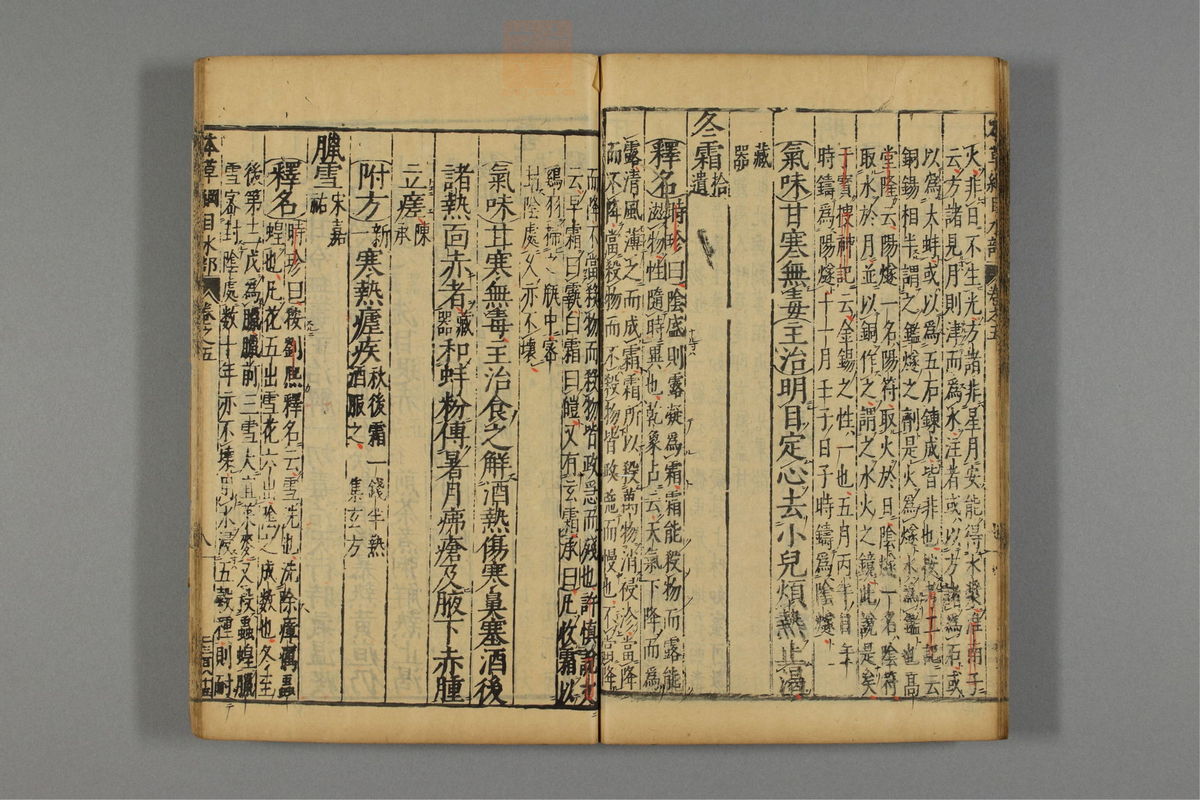 火、非日不生光、方諸非星月安能得水、按淮南子
云、方諸見月、則津而為水、注者或以方諸為石、或
以為大蚌、或以為五石鍊成、皆非也、按考工記云
銅錫相半、謂之鑑燧之劑、是火為燧、水為鑑也、高
堂隆云、陽燧一名陽符、取火於日、陰燧一名陰符
取水於月、並以銅作之、謂之水火之鏡、此說是矣、
干寶搜神記云、金錫之性、一也、五月丙午日午
時鑄為陽燧、十一月壬子日子時鑄為陰燧、
氣味甘寒無毒主治明目定心去小兒煩熱止渴
藏器
冬霜拾遺
釋名時珍曰、陰盛則露凝為霜、霜能殺物而露能
滋物、性隨時異也、乾象占云、天氣下降而為
露、清風薄之而成霜、霜所以殺萬物、消祲沴、當降
而不降、當殺物而不殺物、皆政弛而慢也、不當降
而降、不當殺物而殺物、皆政急而殘也、許慎說文
云、早霜曰霿、白霜曰皚、又有玄霜、承曰、凡收霜以
雞羽掃之、瓶中密
封陰處、久亦不壞、
氣味甘寒無毒、主治食之解酒熱傷寒鼻塞酒後
諸熱面赤者藏器和蚌粉傅暑月疿瘡及腋下赤腫
立瘥陳承
附方新一寒熱瘧疾秋後霜一錢半熱酒服之、集玄方
臘雪宋嘉祐
釋名時珍曰、按劉熙釋名云、雪洗也、洗除瘴癘蟲
蝗也、凡花五出、雪花六出、陰之成數也、冬至
後第三戊為臘、臘前三雪、大宜菜麥、又殺蟲蝗、臘
雪密封陰處、數十年亦不壞、用水浸五穀種、則耐
本草綱目水部 卷之五 八